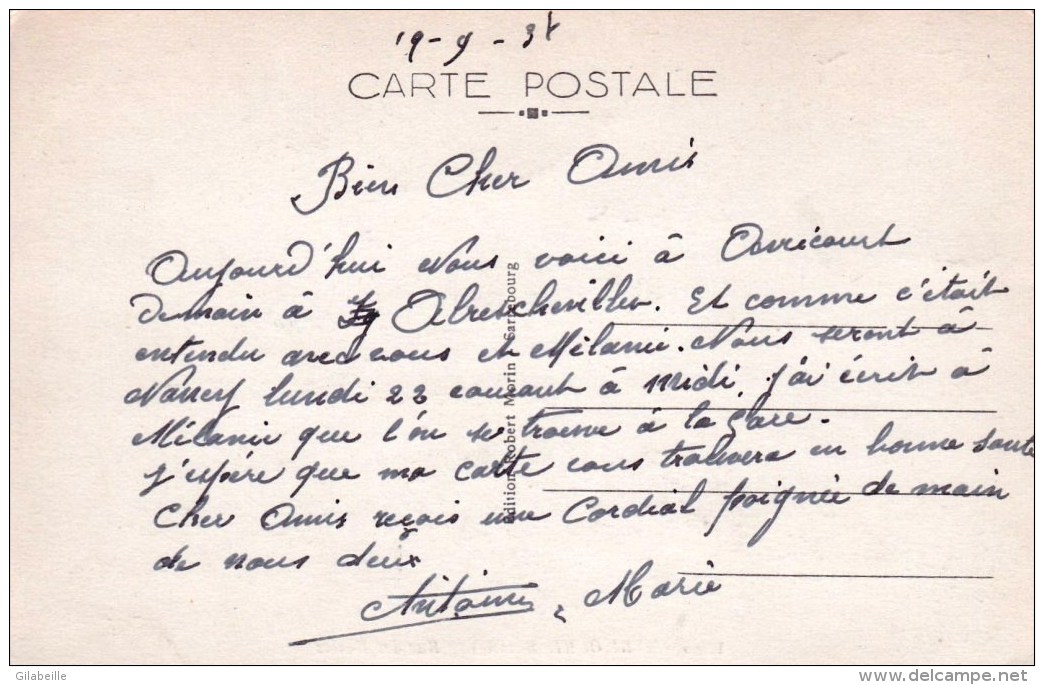 19-9-38
CARTE POSTALE
Bien Cher Amis
Aujourd'hui Nous voici à Avricourt
Demain à Abreschviller. Et comme c'était
entendu avec vous et Mélanie. Nous seront à
Nancy lundi 22 courant à midi, j'ai écrit à
Mélanie que l'on se trouve à la Gare.
J'espère que ma carte vous trouvera en bonne santé
Cher Amis reçois une Cordial poignée de main
de nous deux
Antoine, Marie
Edition Robert Morin Sarrebourg
Gilabeille
www.delcampe.net